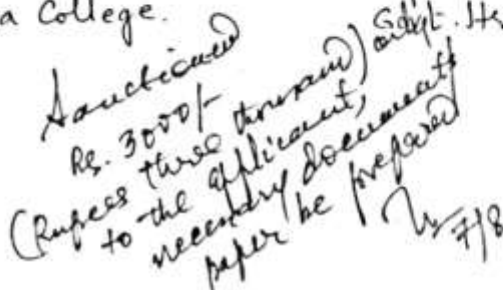 a College.
Sanctioned
Rs. 3000/-
(Rupees three thousand) only.
to the applicant,
necessary documents
paper be prepared
7/8